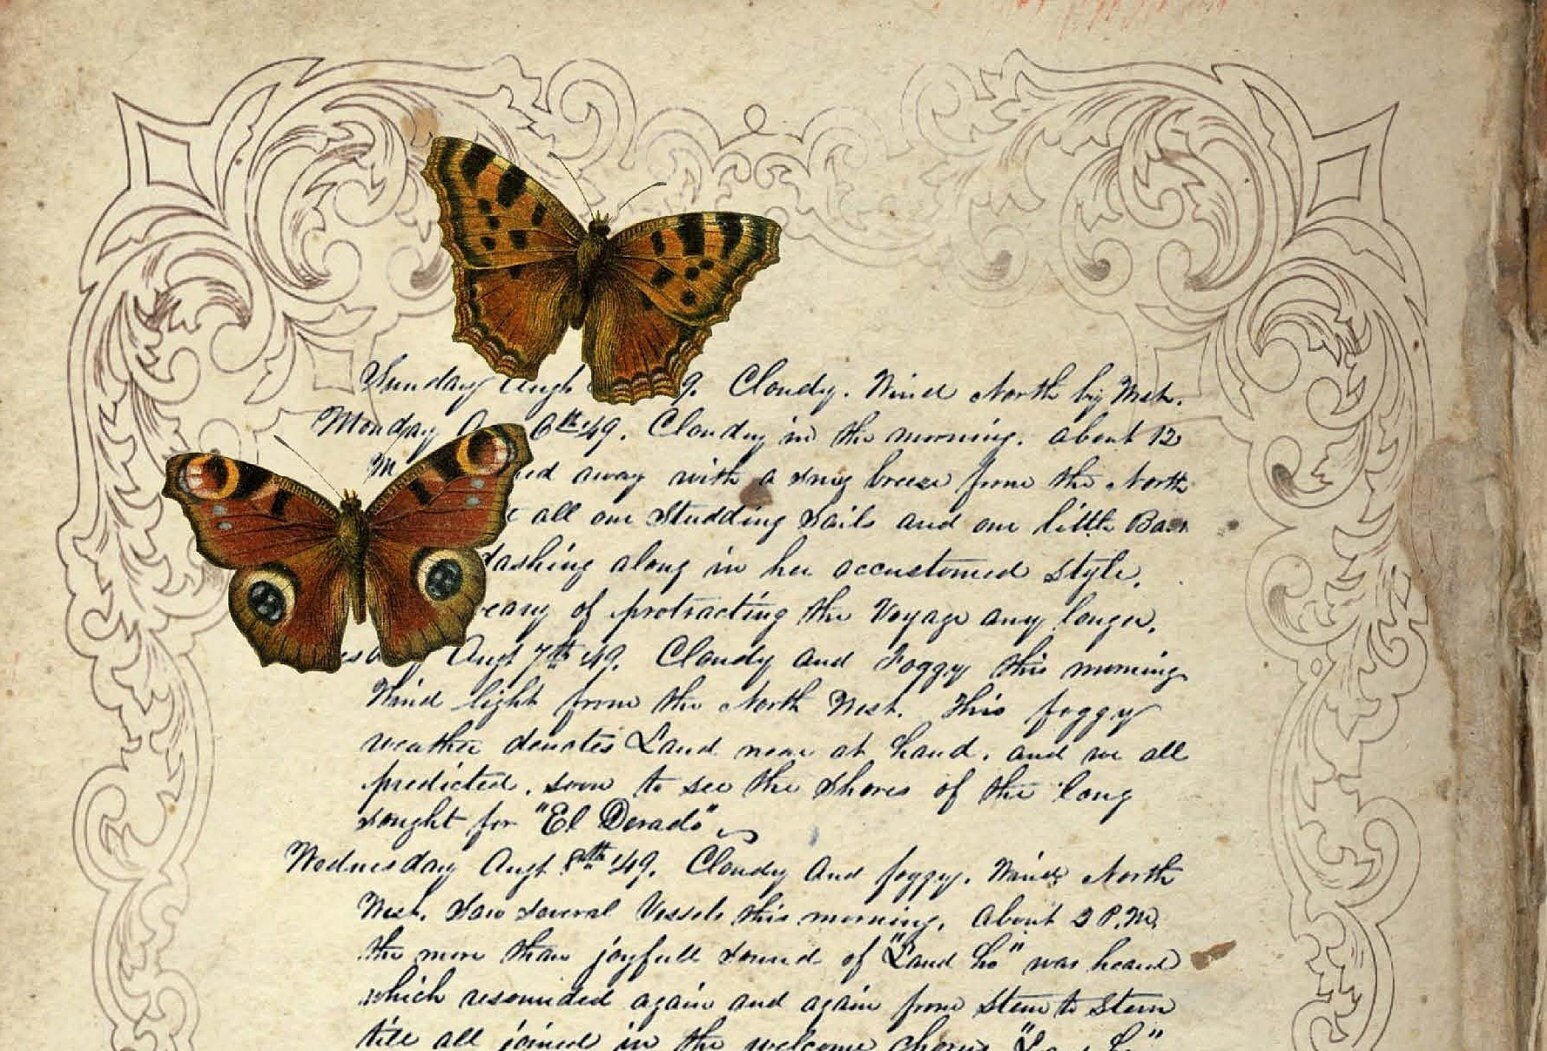 Sunday Augt 9. Cloudy. Wind North by West.
Monday 6th 49. Cloudy in the morning. about 12
M away with a snug breeze from the North
all our Studding Sails and our little Bark
dashing along in her accustomed style.
of protracting the Voyage any longer.
Augt 7th 49. Cloudy and Foggy this morning
Wind light from the North West. This foggy
weather denotes Land near at hand. and we all
predicted. soon to see the Shores of the long
sought for "El Dorado"
Wednesday Augt 8th 49. Cloudy and foggy. Wind North
West. Saw several Vessels this morning. About 2 P.M.
the more than joyfull sound of "Land ho" was heard
which resounded again and again from Stem to Stern
till all joined in the welcome chorus